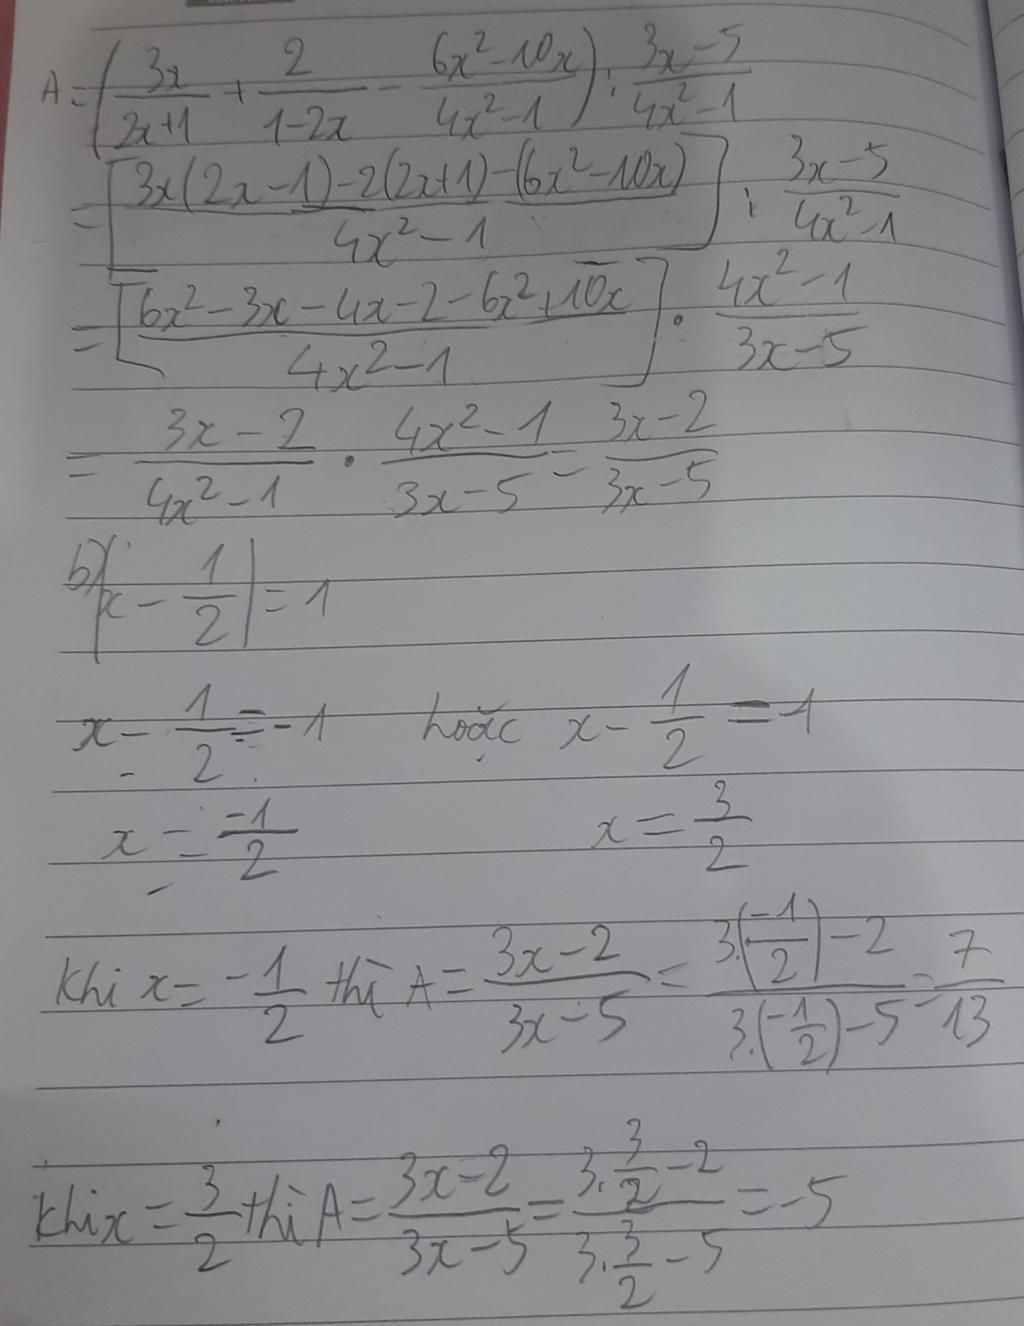 A = (3x/2x+1 + 2/1-2x - 6x²-10x/4x²-1) : 3x-5/4x²-1
= [3x(2x-1)-2(2x+1)-(6x²-10x)/4x²-1] : 3x-5/4x²-1
= [6x²-3x-4x-2-6x²+10x/4x²-1] . 4x²-1/3x-5
= 3x-2/4x²-1 . 4x²-1/3x-5 = 3x-2/3x-5
b) |x - 1/2| = 1
x - 1/2 = -1 hoặc x - 1/2 = 1
x = -1/2 x = 3/2
Khi x = -1/2 thì A = 3x-2/3x-5 = 3.(-1/2)-2/3.(-1/2)-5 = 7/13
Khi x = 3/2 thì A = 3x-2/3x-5 = 3.3/2-2/3.3/2-5 = -5